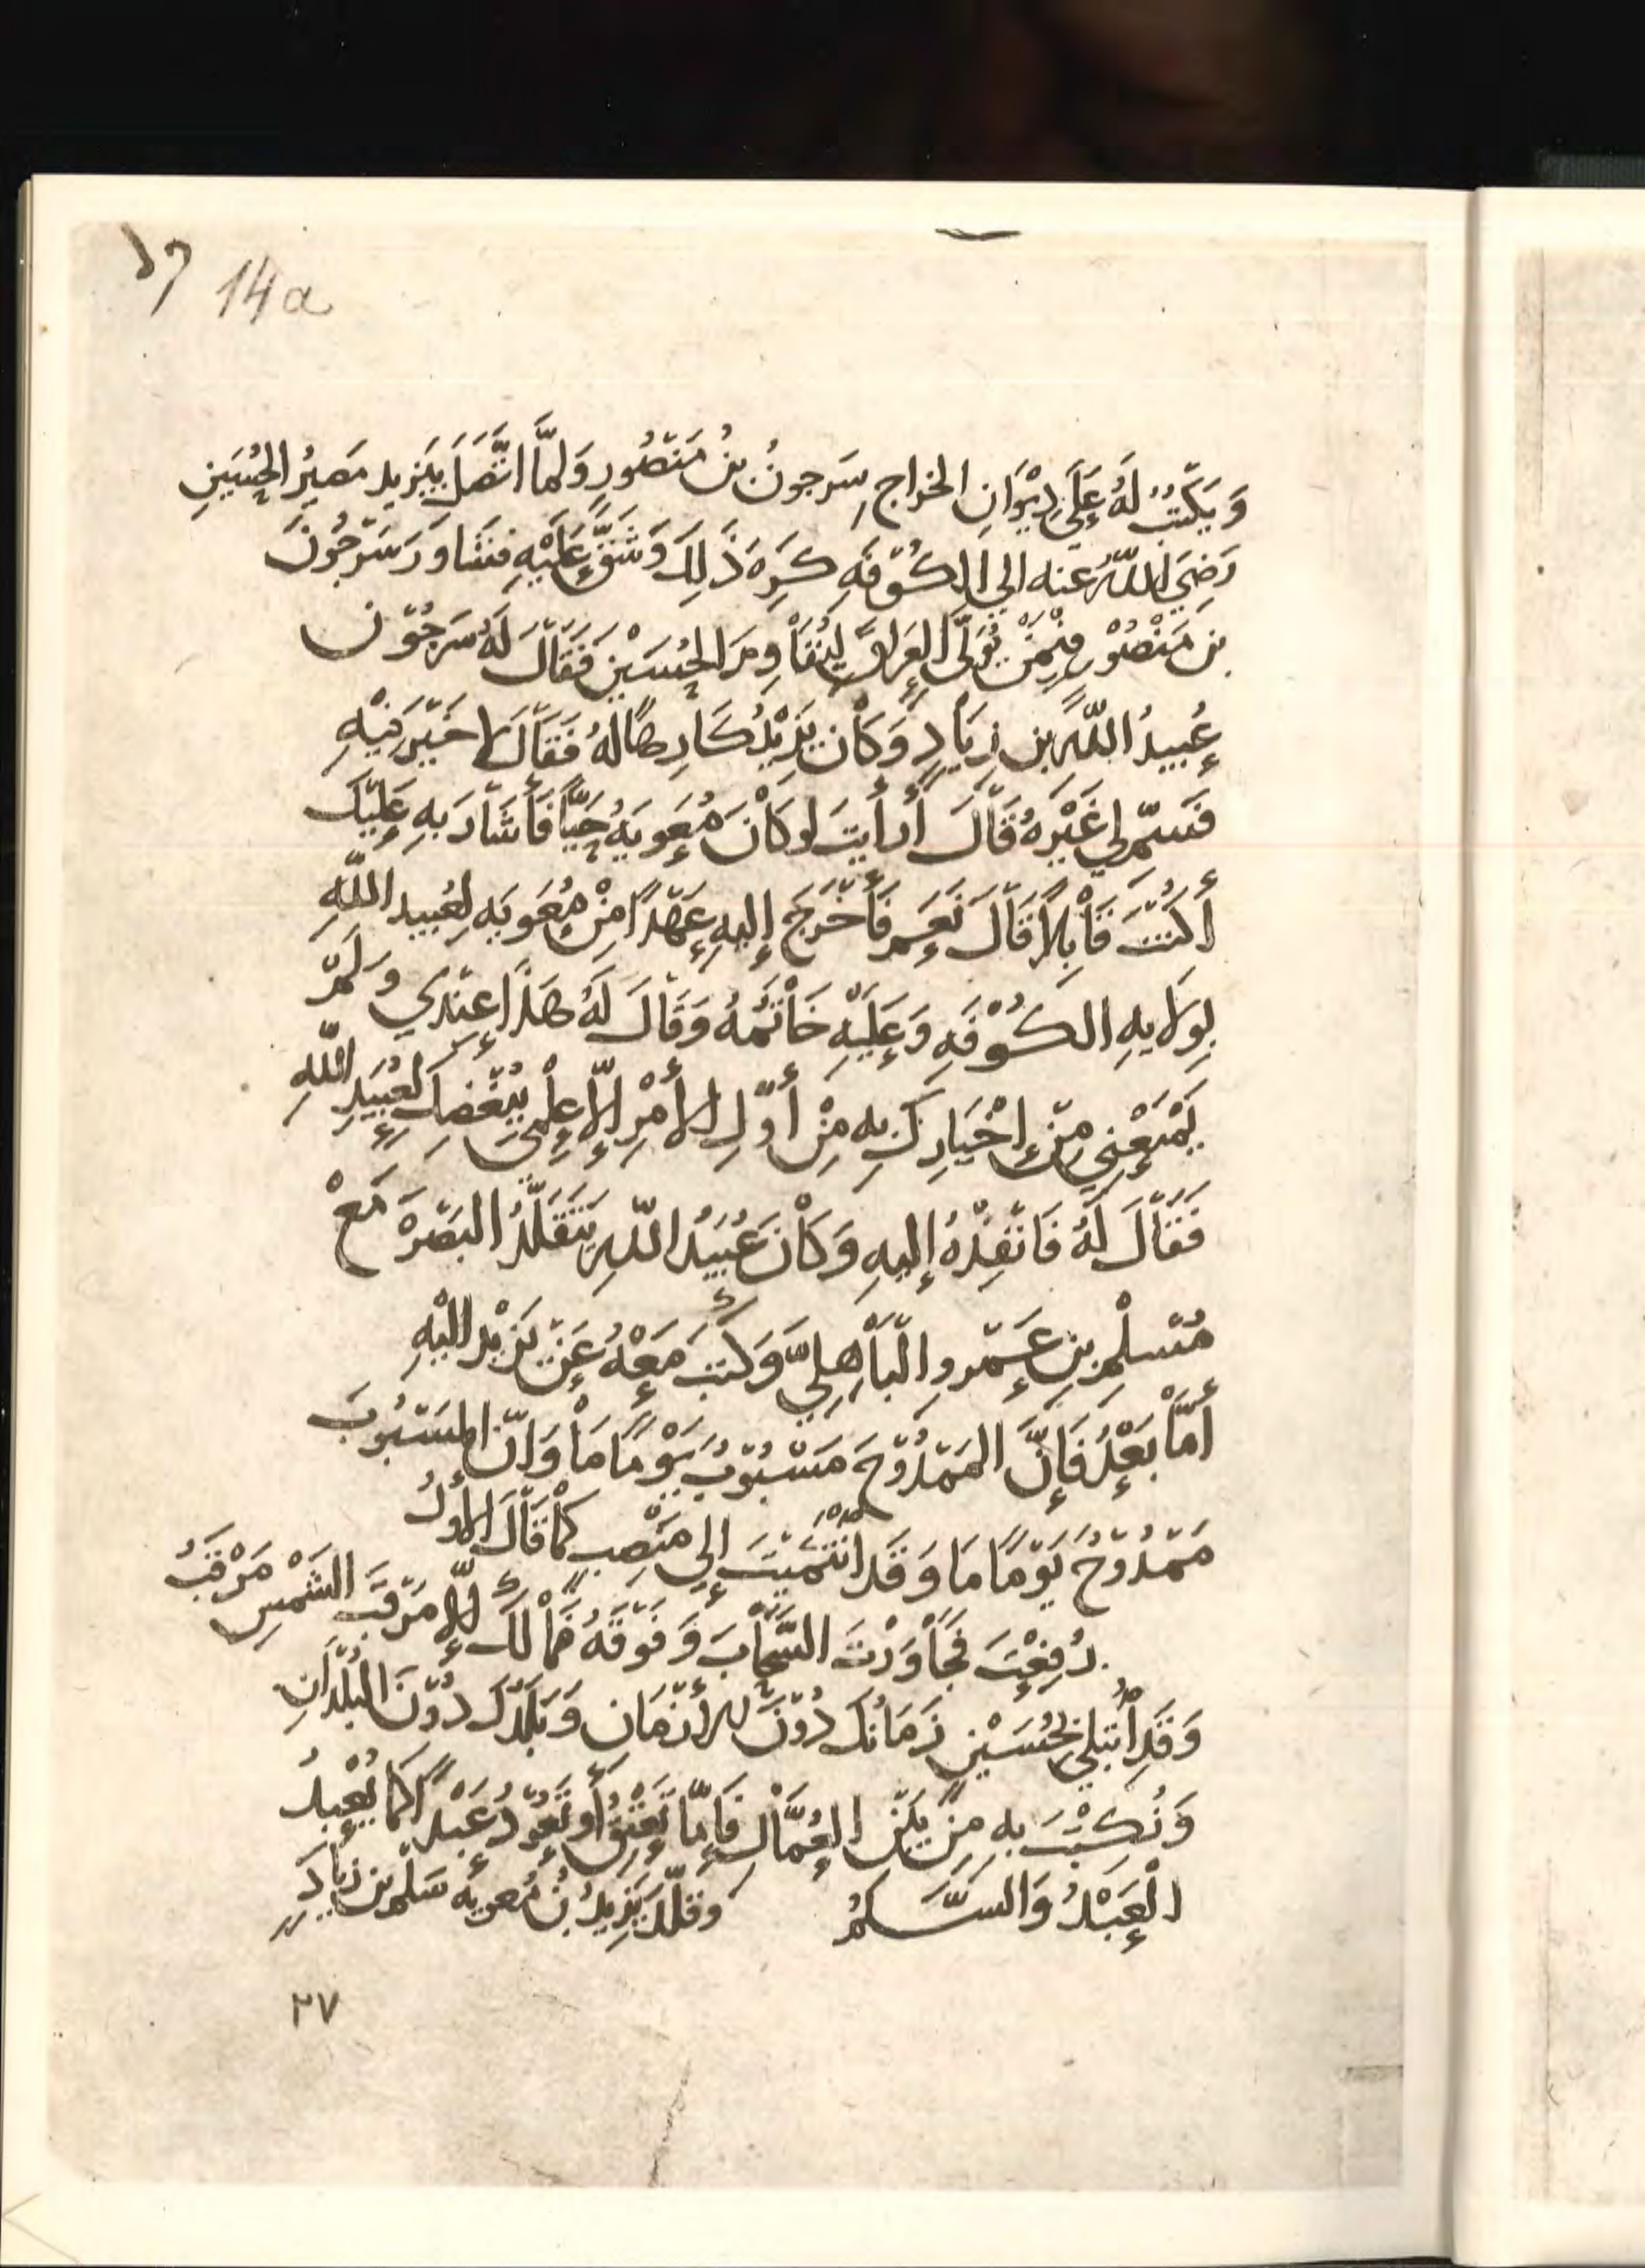 14a
وَيَكتُبُ لَهُ عَلَى دِيْوَانِ الخراجِ سَرجونُ بنُ مَنصُورٍ وَلمَّا اتَّصَلَ بيَزيد مَصيرُ الحُسَينِ
رَضِيَ اللهُ عنه الي الكُوْفَهِ كَرِهَ ذَلِكَ وَشَقَّ عَلَيْهِ فشَاوَرَ سَرْجُونَ
بن مَنْصُوْر فِيْمَنْ يُوَلَّى العِرَاقَ لِيُقَاوِمَ الحُسَيْن فَقَالَ لَهُ سَرجُوْن
عُبيدُ اللهِ بن زِيَادٍ وَكَانَ يَزِيْدُ كَارِهًا لهُ فَقَالَ لا خَيْرَ فِيْهِ
فَسَمِّ لِي غَيْرَهُ قَالَ أَرأَيتَ لو كَانَ مُعَويَهُ حَيًّا فَأَشَارَ بهِ عَلَيْكَ
أَكُنْتَ قَابِلاً قَالَ نَعَم فَأَخْرَجَ إِليهِ عَهْدًا مِنْ مُعَويَه لِعُبيد اللهِ
بِوِلايهِ الكُوْفَهِ وَعَلَيْهِ خَاتَمُهُ وَقَالَ لَهُ هَذَا عِنْدِي وَلَمْ
يَمْنَعْنِي مِنْ إِخْبَارِكَ بِهِ مِنْ أَوَّلِ الأَمْرِ إِلاَّ عِلْمِي بِبُغْضِكَ لعُبَيْدِ اللهِ
فَقَالَ لَهُ فَانْفِذْهُ إِليهِ وَكَانَ عُبَيْدُ اللهِ يَتَقَلَّدُ البَصْرَهَ مَعْ
مُسْلِم بنِ عَمْرو البَاهِلِيِّ وَكَتَب مَعْهُ عَنْ يَزيْد اليْهِ
أَمَّا بَعْدُ فَإِنَّ المَمْدُوْحَ مَسْبُوْبٌ يَوْمًا مَا وَانَّ المَسْبُوبَ
مَمْدُوْحٌ يَوْمًا مَا وَقَد انْتَمَيْتَ إِلي مَنْصِبٍ كمَا قَالَ الأَوَّلُ
رُفِعْتَ فجَاوَزْتَ السَّحَابَ وَفَوْقَهُ فمَا لَكَ إِلاَّ مَرْقَبَ الشَمْسِ مَرْقَبُ
وَقَدِ ابْتُلِيَ بحُسَيْنٍ زَمَانُكَ دُوْنَ الأَزْمَان وَبَلَدُكَ دُوْنَ البُلْدَانِ
وَنُكِبْتَ بهِ مِنْ بَيْن العُمَّالِ فَإِمَّا تُعْتَقُ أَو تَعُوْدُ عَبْدًا كمَا يُعْبَدُ
العَبْدُ وَالسَّلَمُ وقلّدَ يَزِيدُ بنُ مُعويَه سَلْم بن زيادٍ
٢٧